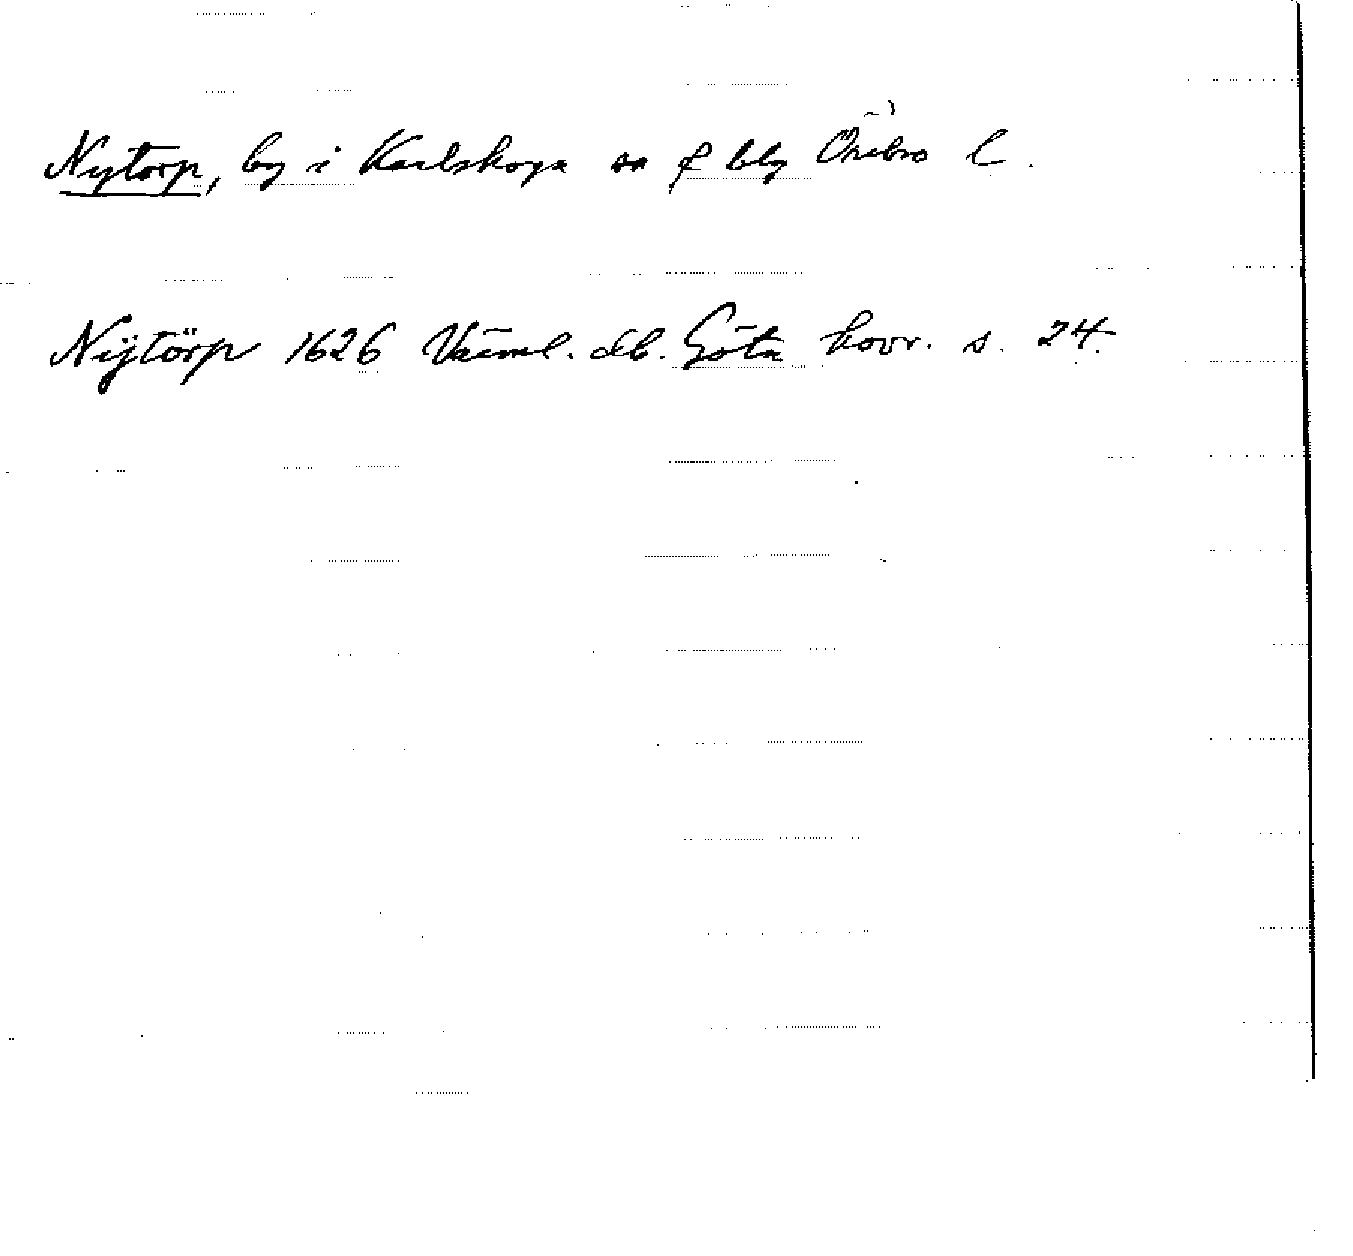 Nytorp, by i Karlskoga sn o bg Örebro l.
Nÿtörp 1626 Värml. db. Göta hovr. s. 24.